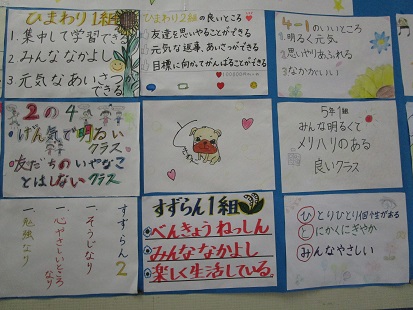 ひまわり1組
1. 集中して学習できる
2. みんななかよし
3. 元気なあいさつができる
ひまわり2組の良いところ
友達を思いやることができる
元気な返事、あいさつができる
目標に向かってがんばることができる
4-1のいいところ
1.明るく元気
2.思いやりあふれる
3.なかがいい!
2の4
・げん気で明るいクラス
・友だちのいやなことはしないクラス
5年1組
みんな明るくて
メリハリのある
良いクラス
すずらん2
一、そうじなり
一、心やさしいところなり
一、勉強なり
すずらん1組
●べんきょうねっしん
●みんななかよし
●楽しく生活している。
ひとりひとり個性がある
とにかくにぎやか
みんなやさしい